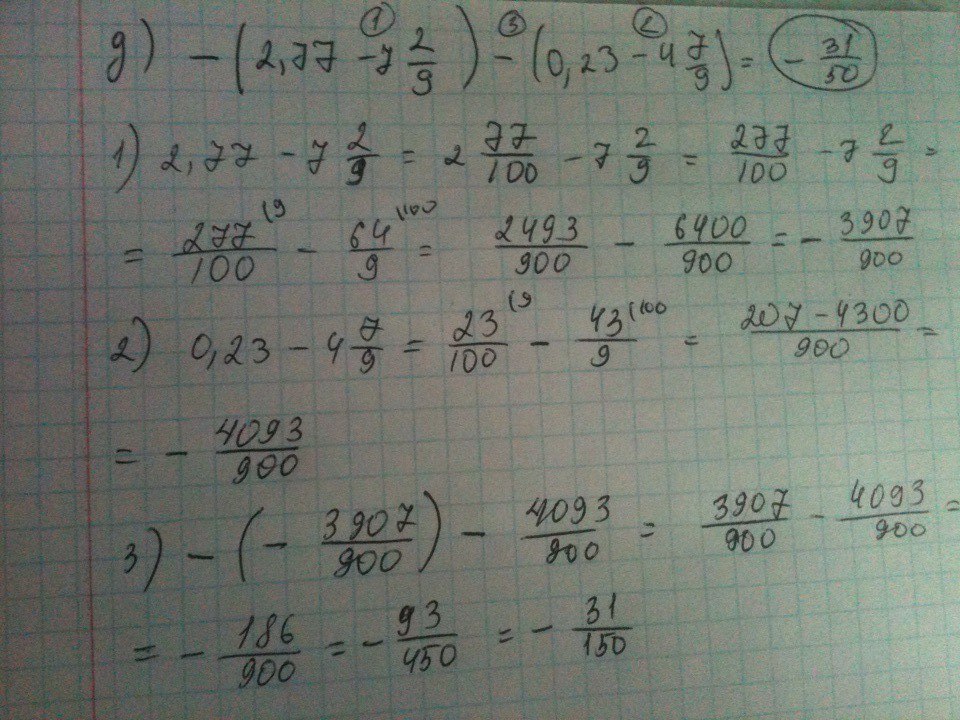 ① ③ ②
д) - (2,77 - 7 2/9) - (0,23 - 4 7/9) = - 31/50
1) 2,77 - 7 2/9 = 2 77/100 - 7 2/9 = 277/100 - 7 2/9 =
= 277/100 (9 - 64/9 (100 = 2493/900 - 6400/900 = - 3907/900
2) 0,23 - 4 7/9 = 23/100 (9 - 43/9 (100 = 207 - 4300/900 =
= - 4093/900
3) - (- 3907/900) - 4093/900 = 3907/900 - 4093/900 =
= - 186/900 = - 93/450 = - 31/150